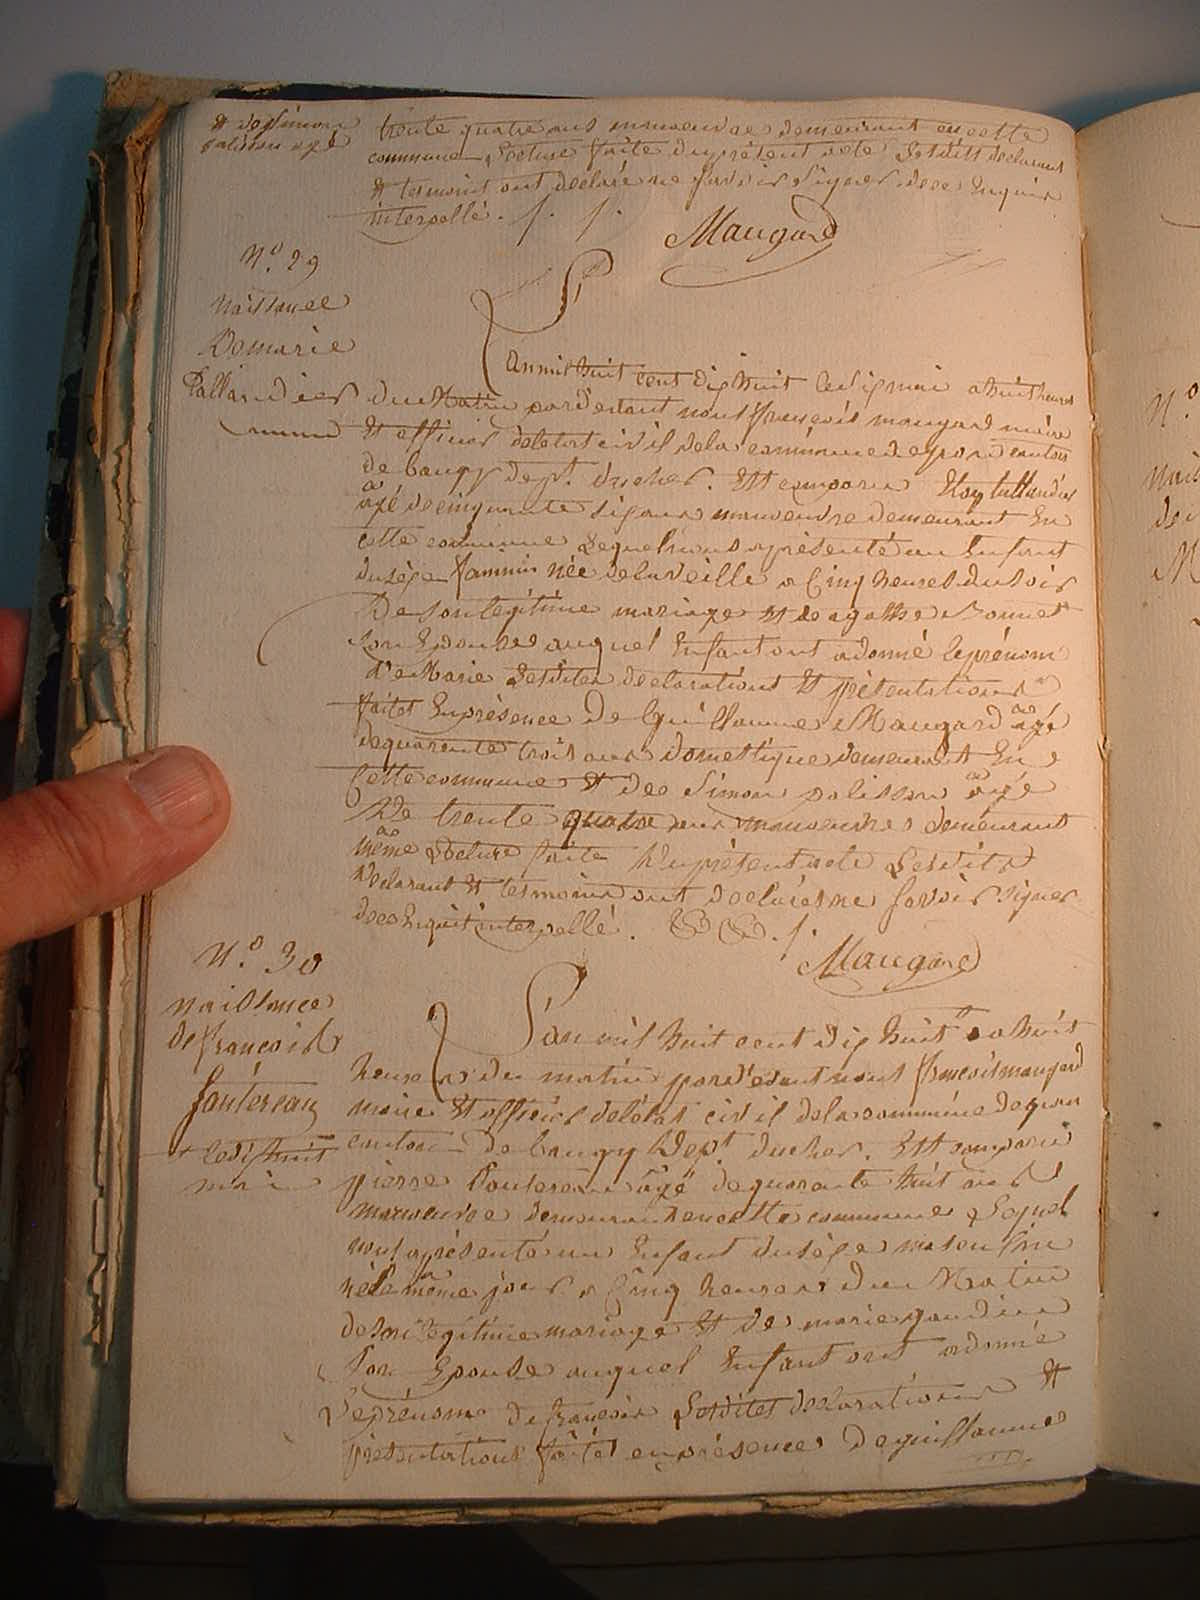 & de simon
palisson agé
trente quatre ans manoeuvre demeurant en cette
commune Lecture faite du présent acte Lesdits declarant
& temoins ont déclaré ne savoir signer de ce Enquis
interpellé.
Maugard
N.o 29
naissance
De marie
Tallandier
L'an mil huit cent dix huit Le six mai a huit heures
du Matin pardevant nous françois maugard maire
Et officier de létat civil de la commune de gron canton
de baugy dep.t du cher. Est comparu Eloy tallandier
agé de cinquante six ans manoeuvre demeurant En
cette commune Lequel nous a présenté un Enfant
du sèxe faminin née de la veille a Cinq heures du soir
De son legitime mariage Et de agathe Bonnet
son Epouse auquel Enfant ont a donné le prénom
de Marie Lesdites declarations Et présentations
faites En présence De Guillaume Maugard agé
de quarante trois ans domestique demeurant En
Cette commune Et de Simon palisson agé
De trente quatre ans manoeuvre demeurant
même Lecture faite Du présent acte Lesdits
Declarant Et temoins ont declaré ne savoir signer
de ce Enquis interpellé.
Maugard
N.o 30
naissance
de françois
fautereau
+ Le dix huit
mai
L'an mil huit cent dix huit + a huit
heures du matin pardevant nous françois maugard
maire Et officier de létat civil de la commune de gron
canton de baugy Dep.t du cher. Est comparu
pierre fautereau agé de quarante huit ans
manoeuvre demeurant en cette commune Lequel
nous a présenté un Enfant du sèxe masculin
né le même jour a Cinq heures du Matin
de son legitime mariage Et de marie gaudin
son Epouse auquel Enfant ont a donné
Le prénom de françois Lesdites declarations Et
présentations faites en présence De guillaume